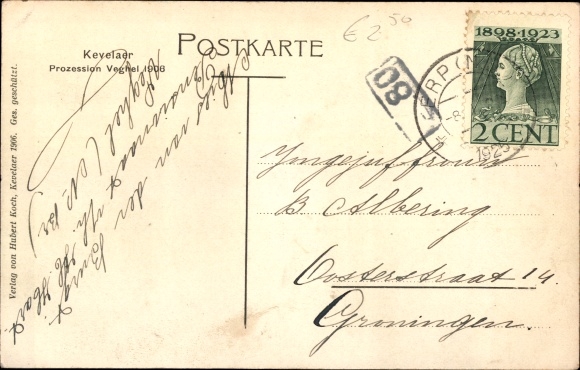 Kevelaer
Prozession Veghel 1906
POSTKARTE
€ 2,50
80
ERP (N
1898-1923
2 CENT
1923
Verlag von Hubert Koch, Kevelaer 1906. Ges. geschützt.
Mejuffrouw
B. Albering
Oosterstraat 14.
Groningen.
van der
Veghel (N. Br.)